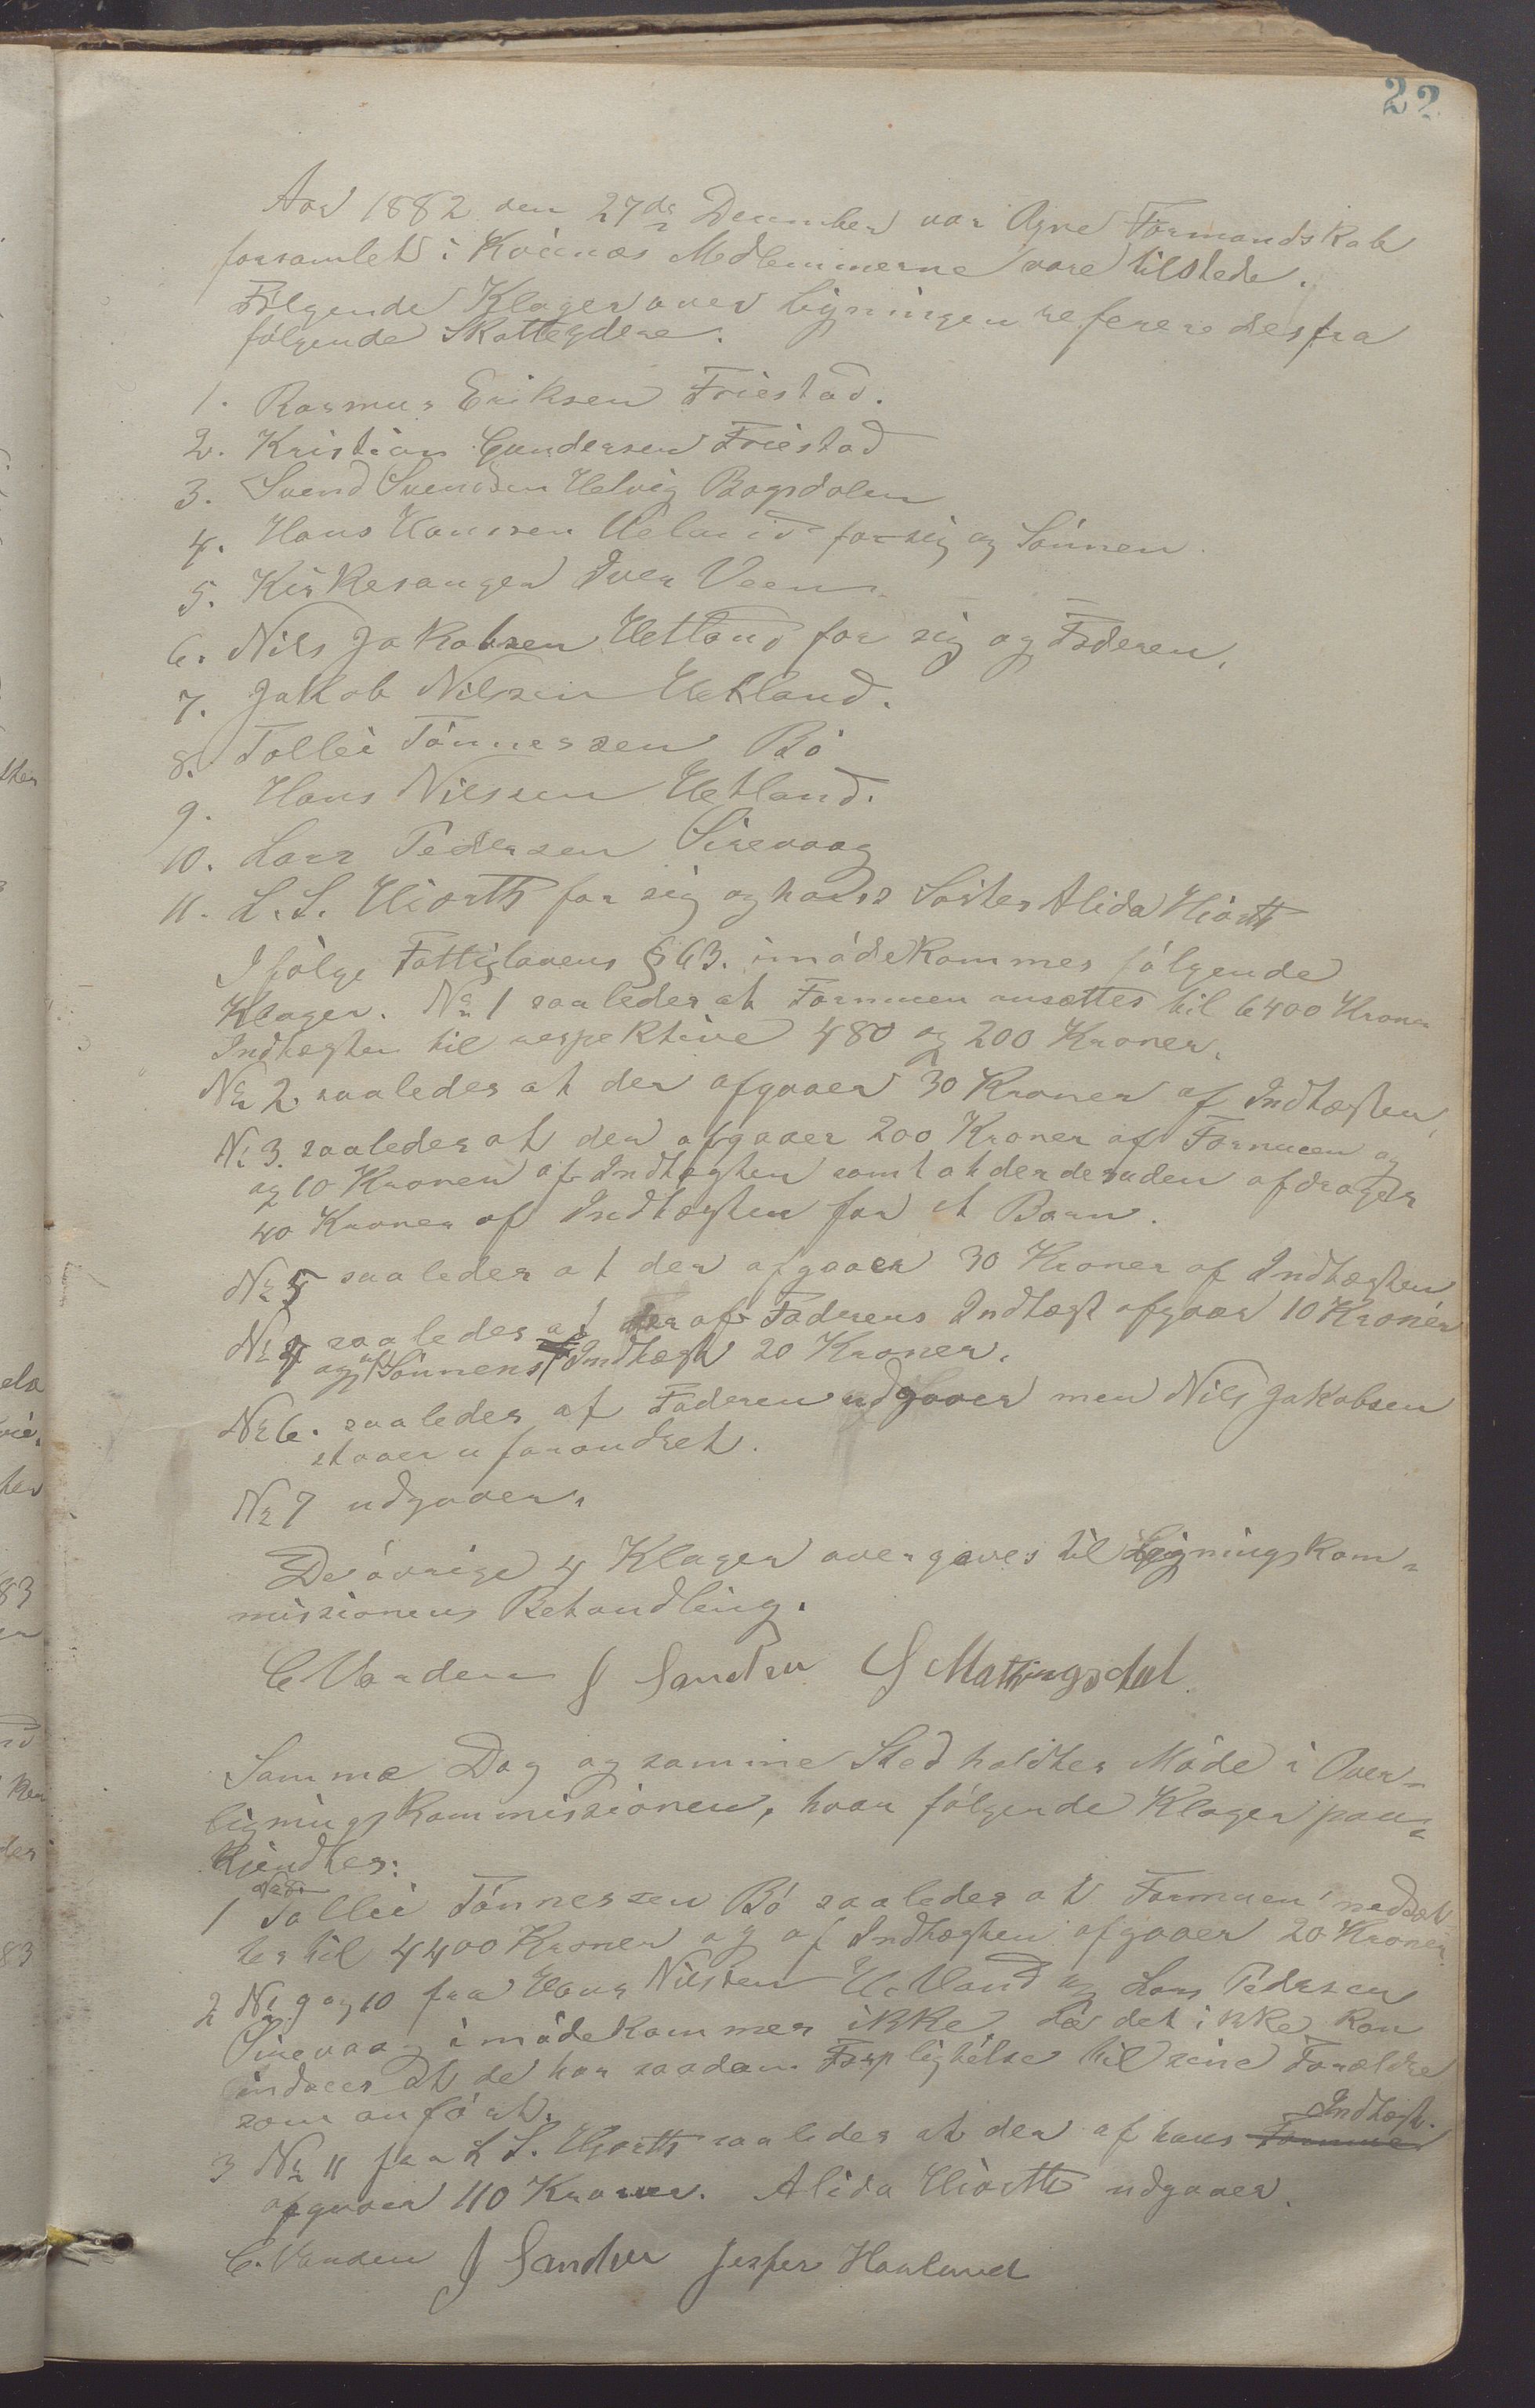 22
Aar 1882 den 27de December var Ogne Formandskab
forsamlet i Kvinnes Medlemmerne vare tilstede.
Følgende Klager over Ligningen refereredes fra
følgende Skatteydere.
1. Rasmus Eriksen Friestad.
2. Kristian Gundersen Friestad
3. Svend Svendsen Helvig Bogsdalen
4. Hans Hansen Ueland for sig og Sønnen
5. Kirkesanger Iver Veen
6. Nils Jakobsen Hetland for sig og Faderen.
7. Jakob Nilsen Hetland.
8. Tollei Tønnessen Bø
9. Hans Nilssen Hetland.
10. Lars Pedersen Sirevaag
11. L. S. Hiorth for sig og hans Søster Alida Hiorth
Ifølge Fattiglovens § 63. imødekommes følgende
Klager. No 1 saaledes at Formuen ansættes til 6400 Kroner
Indtægten til respektive 480 og 200 Kroner.
No 2. saaledes at der afgaaer 30 Kroner af Indtægten.
No 3. saaledes at der afgaaer 200 Kroner af Formuen og
og 10 Kroner af Indtægten samt at der desuden afdrages
40 Kroner af Indtægten for et Barn.
No 5 saaledes at der afgaaer 30 Kroner af Indtægten
No 4 saaledes at der af Faderens Indtægt afgaar 10 Kroner
og af Sønnens Indtægt 20 Kroner.
No 6. saaledes at Faderen udgaaer men Nils Jakobsen
staaer uforandret.
No 7 udgaaer.
De øvrige 4 Klager overgaves til Ligningskom-
missionens Behandling.
C Varden J Sandve S Mattingsdal
Samme Dag og samme Sted holdtes Møde i Over-
ligningskommissionen, hvor følgende Klager paa-
kjendtes:
No 8.
1 Tollei Tønnessen Bø saaledes at Formuen nedsæt
tes til 4400 Kroner og af Indtægten afgaaer 20 Kroner
2 No 9 og 10 fra Hans Nilssen Hetland og Lars Pedersen
Sirevaag imødekommes ikke da det ikke kan
indsees at de har saadan Forpligtelse til sine Forældre
som anført.
Indtægt.
3 No 11 fra L S. Hiorth saaledes at der af hans Formue
afgaaer 110 Kroner. Alida Hiorth udgaaer.
C. Varden J Sandve Jesper Haaland